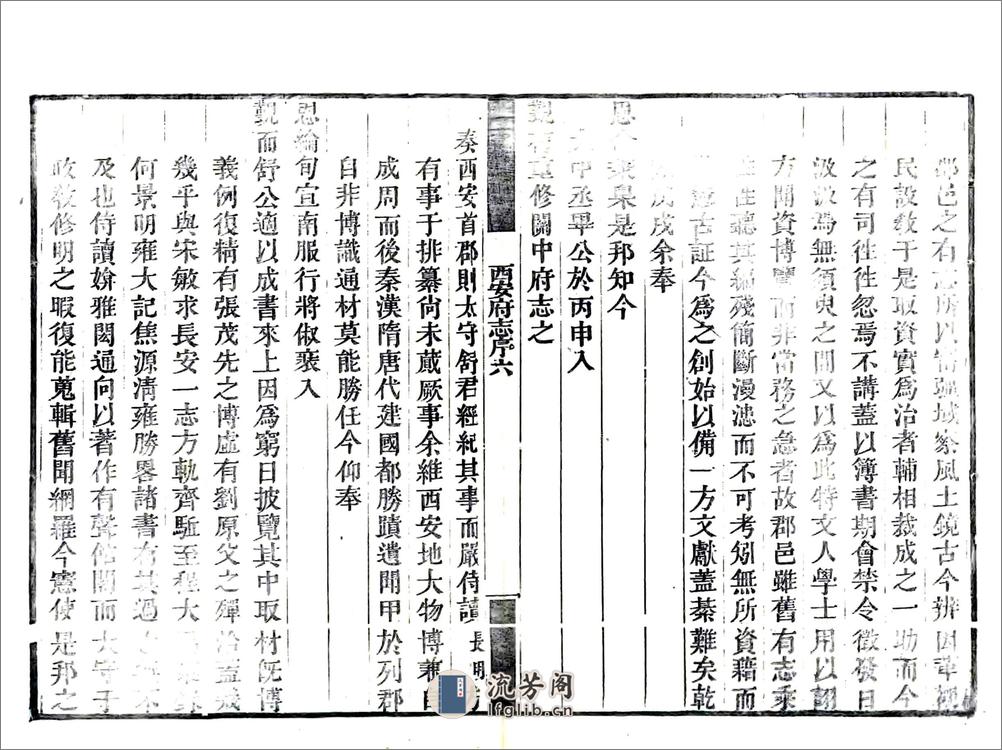 郡邑之有志所以審疆域察風土鏡古今辨因革經
民設教于是取資實爲治者輔相裁成之一助而今
之有司徃徃忽焉不講蓋以簿書期會禁令徵發日
汲汲焉無須臾之間又以爲此特文人學士用以詡
方聞資博覽而非當務之急者故郡邑雖舊有志乘
徃徃聽其編殘簡斷漫漶而不可考矧無所資藉而
憲古証今爲之創始以備一方文獻蓋綦難矣乾
戊戌余奉
恩命秉臬是邦知今
中丞畢公於丙申入
覲有重修關中府志之
西安府志序 六
奏西安首郡則太守舒君經紀其事而嚴侍讀長明
有事于排纂尚未蕆厥事余維西安地大物博兼
成周而後秦漢隋唐代建國都勝蹟遺聞甲於列郡
自非博識通材莫能勝任今仰奉
恩綸旬宣南服行將俶裝入
覲而舒公適以成書來上因爲窮日披覽其中取材既博
義例復精有張茂先之博虛有劉原父之殫洽蓋
幾乎與宋敏求長安一志方軌齊駈至程大
何景明雍大記焦源淸雍勝畧諸書有其過 不
及也侍讀媕雅閎通向以著作有聲 關而太守于
政敎修明之暇復能蒐輯舊聞網羅今憲使是邦之
流芳阁
lfglib.cn